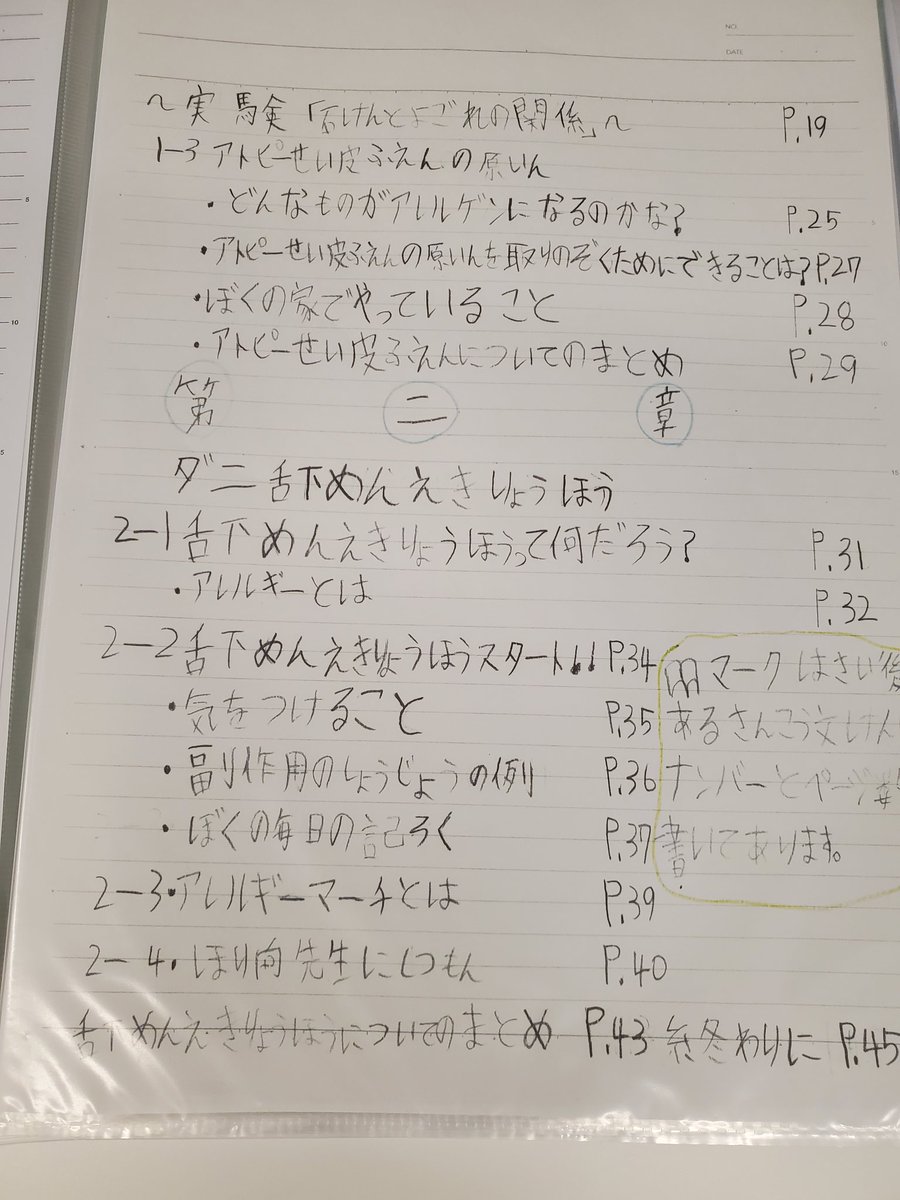 NO.
DATE
～実験「石けんとよごれの関係」～ P.19
1-3 アトピーせい皮ふえんの原いん
・どんなものがアレルゲンになるのかな? P.25
・アトピーせい皮ふえんの原いんを取りのぞくためにできることは? P.27
・ぼくの家でやっていること P.28
・アトピーせい皮ふえんについてのまとめ P.29
第 二 章
ダニ舌下めんえきりょうほう
2-1 舌下めんえきりょうほうって何だろう? P.31
・アレルギーとは P.32
2-2 舌下めんえきりょうほうスタート!! P.34
・気をつけること P.35
・副作用のしょうじょうの例 P.36
・ぼくの毎日の記ろく P.37
マークはさい後
あるさんこう文けん
ナンバーとページ
書いてあります。
2-3・アレルギーマーチとは P.39
2-4・ほり向先生にしつもん P.40
舌下めんえきりょうほうについてのまとめ P.43 終わりに P.45